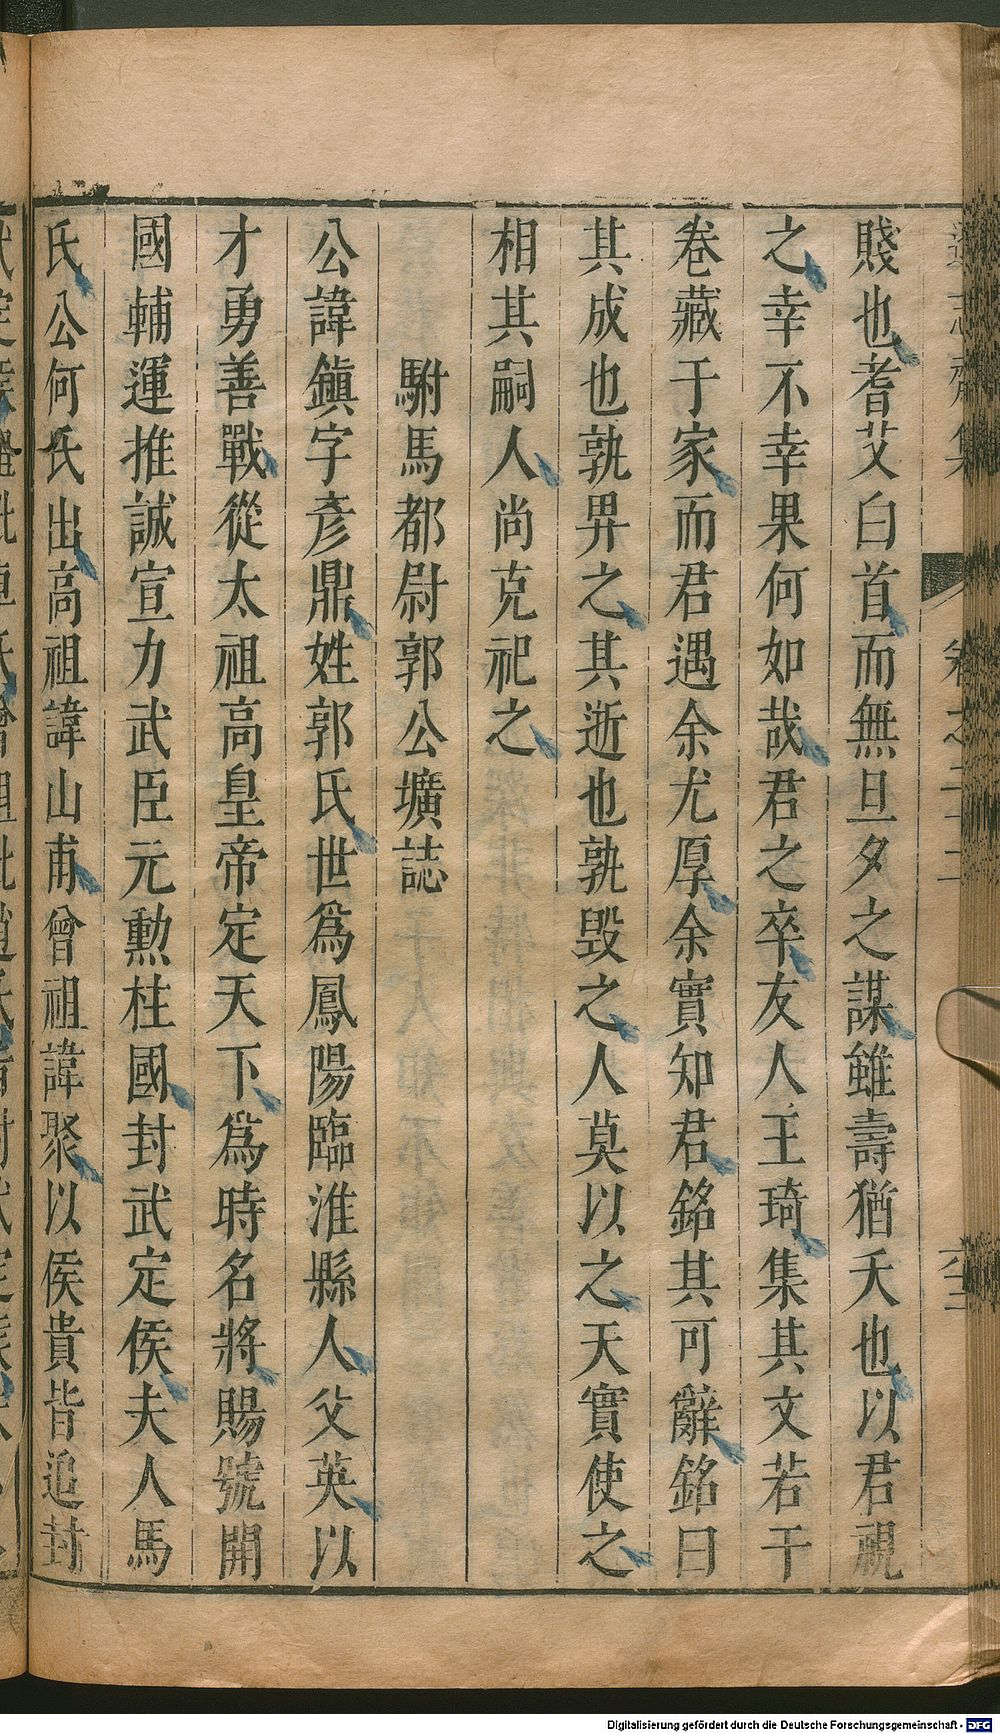 賤也耆艾白首而無旦夕之謀雖壽猶夭也以君視
之幸不幸果何如哉君之卒友人王琦集其文若干
卷藏于家而君遇余尤厚余實知君銘其可辭銘曰
其成也孰畀之其逝也孰毀之人莫以之天實使之
相其嗣人尚克祀之
駙馬都尉郭公壙誌
公諱鎮字彥鼎姓郭氏世為鳳陽臨淮縣人父英以
才勇善戰從太祖高皇帝定天下為時名將賜號開
國輔運推誠宣力武臣元勳柱國封武定侯夫人馬
氏公何氏出高祖諱山甫曾祖諱聚以侯貴皆追封
Digitalisierung gefördert durch die Deutsche Forschungsgemeinschaft - DFG